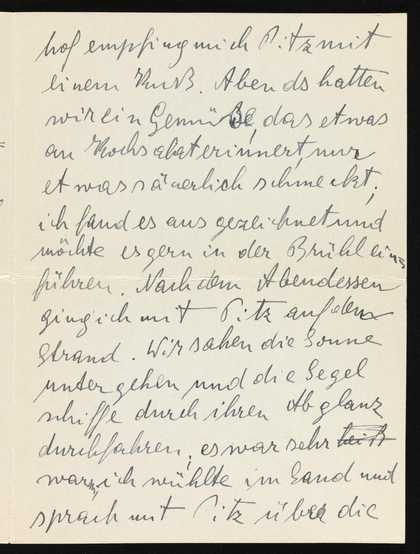 hof empfing mich Pitz mit
einem Kuß. Abends hatten
wir ein Gemüße, das etwas
an Kochsalat erinnert, nur
etwas säuerlich schmeckt;
ich fand es ausgezeichnet und
möchte es gern in der Brühl ein=
führen. Nach dem Abendessen
ging ich mit Pitz auf den
Strand. Wir sahen die Sonne
untergehen und die Segel
schiffe durch ihren Abglanz
durchfahren; es war sehr heiß
warm, ich wühlte im Sand und
sprach mit Pitz über die